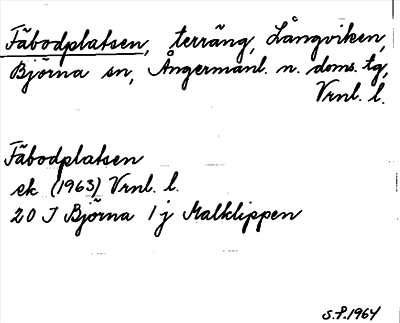 Fäbodplatsen, terräng, Långviken,
Björna sn, Ångermanl. n. doms. tg,
Vrnl. l.
Fäbodplatsen
ek (1963) Vrnl. l.
20 I Björna 1 j Malklippen
S.P. 1964